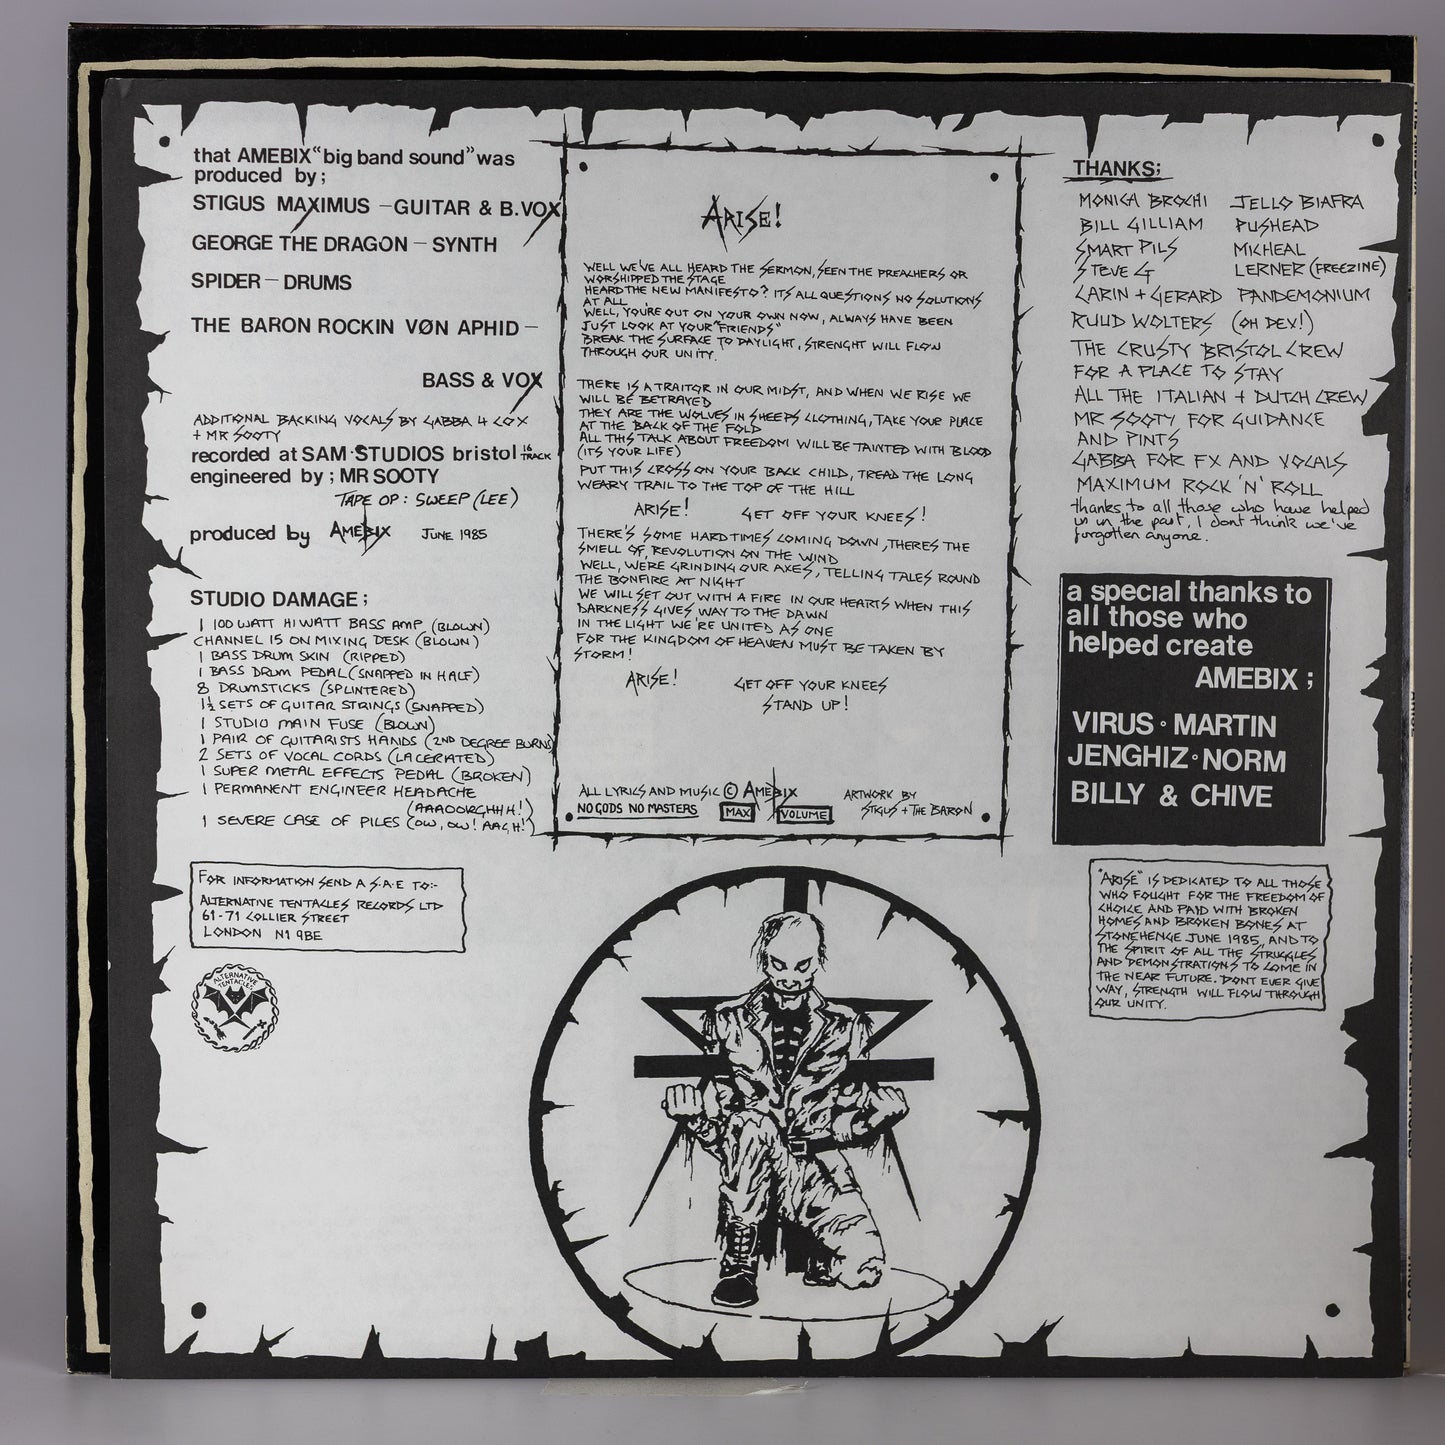 that AMEBIX "big band sound" was
produced by ;
STIGUS MAXIMUS – GUITAR & B.VOX
GEORGE THE DRAGON – SYNTH
SPIDER – DRUMS
THE BARON ROCKIN VØN APHID –
BASS & VOX
ADDITIONAL BACKING VOCALS BY GABBA 4 COX
+ MR SOOTY
recorded at SAM·STUDIOS bristol 16 TRACK
engineered by ; MR SOOTY
TAPE OP : SWEEP (LEE)
produced by AMEBIX JUNE 1985
STUDIO DAMAGE ;
1 100 WATT HIWATT BASS AMP (BLOWN)
CHANNEL 15 ON MIXING DESK (BLOWN)
1 BASS DRUM SKIN (RIPPED)
1 BASS DRUM PEDAL (SNAPPED IN HALF)
8 DRUMSTICKS (SPLINTERED)
1½ SETS OF GUITAR STRINGS (SNAPPED)
1 STUDIO MAIN FUSE (BLOWN)
1 PAIR OF GUITARISTS HANDS (2ND DEGREE BURNS)
2 SETS OF VOCAL CORDS (LACERATED)
1 SUPER METAL EFFECTS PEDAL (BROKEN)
1 PERMANENT ENGINEER HEADACHE
(AAAOORGHHH!)
1 SEVERE CASE OF PILES (OW, OW! AAGH!)
FOR INFORMATION SEND A S.A.E TO:-
ALTERNATIVE TENTACLES RECORDS LTD
61-71 COLLIER STREET
LONDON N1 9BE
ALTERNATIVE
TENTACLES
ARISE!
WELL WE'VE ALL HEARD THE SERMON, SEEN THE PREACHERS OR
WORSHIPPED THE STAGE
HEARD THE NEW MANIFESTO? ITS ALL QUESTIONS NO SOLUTIONS
AT ALL
WELL, YOU'RE OUT ON YOUR OWN NOW, ALWAYS HAVE BEEN
JUST LOOK AT YOUR "FRIENDS"
BREAK THE SURFACE TO DAYLIGHT, STRENGHT WILL FLOW
THROUGH OUR UNITY.
THERE IS A TRAITOR IN OUR MIDST, AND WHEN WE RISE WE
WILL BE BETRAYED
THEY ARE THE WOLVES IN SHEEPS CLOTHING, TAKE YOUR PLACE
AT THE BACK OF THE FOLD
ALL THIS TALK ABOUT FREEDOM WILL BE TAINTED WITH BLOOD
(IT'S YOUR LIFE)
PUT THIS CROSS ON YOUR BACK CHILD, TREAD THE LONG
WEARY TRAIL TO THE TOP OF THE HILL
ARISE! GET OFF YOUR KNEES!
THERE'S SOME HARD TIMES COMING DOWN, THERES THE
SMELL OF REVOLUTION ON THE WIND
WELL, WERE GRINDING OUR AXES, TELLING TALES ROUND
THE BONFIRE AT NIGHT
WE WILL SET OUT WITH A FIRE IN OUR HEARTS WHEN THIS
DARKNESS GIVES WAY TO THE DAWN
IN THE LIGHT WE'RE UNITED AS ONE
FOR THE KINGDOM OF HEAVEN MUST BE TAKEN BY
STORM!
ARISE! GET OFF YOUR KNEES
STAND UP!
ALL LYRICS AND MUSIC © AMEBIX
NO GODS NO MASTERS MAX VOLUME
ARTWORK BY
STIGUS + THE BARON
THANKS;
MONICA BROCHI JELLO BIAFRA
BILL GILLIAM PUSHEAD
SMART PILS MICHEAL
STEVE G LERNER (FREEZINE)
CARIN + GERARD PANDEMONIUM
RUUD WOLTERS (OH DEX!)
THE CRUSTY BRISTOL CREW
FOR A PLACE TO STAY
ALL THE ITALIAN + DUTCH CREW
MR SOOTY FOR GUIDANCE
AND PINTS
GABBA FOR FX AND VOCALS
MAXIMUM ROCK 'N' ROLL
thanks to all those who have helped
us in the past, I dont think we've
forgotten anyone.
a special thanks to
all those who
helped create
AMEBIX ;
VIRUS · MARTIN
JENGHIZ · NORM
BILLY & CHIVE
"ARISE" IS DEDICATED TO ALL THOSE
WHO FOUGHT FOR THE FREEDOM OF
CHOICE AND PAID WITH BROKEN
HOMES AND BROKEN BONES AT
STONEHENGE JUNE 1985, AND TO
THE SPIRIT OF ALL THE STRUGGLES
AND DEMONSTRATIONS TO COME IN
THE NEAR FUTURE. DONT EVER GIVE
WAY, STRENGTH WILL FLOW THROUGH
OUR UNITY.